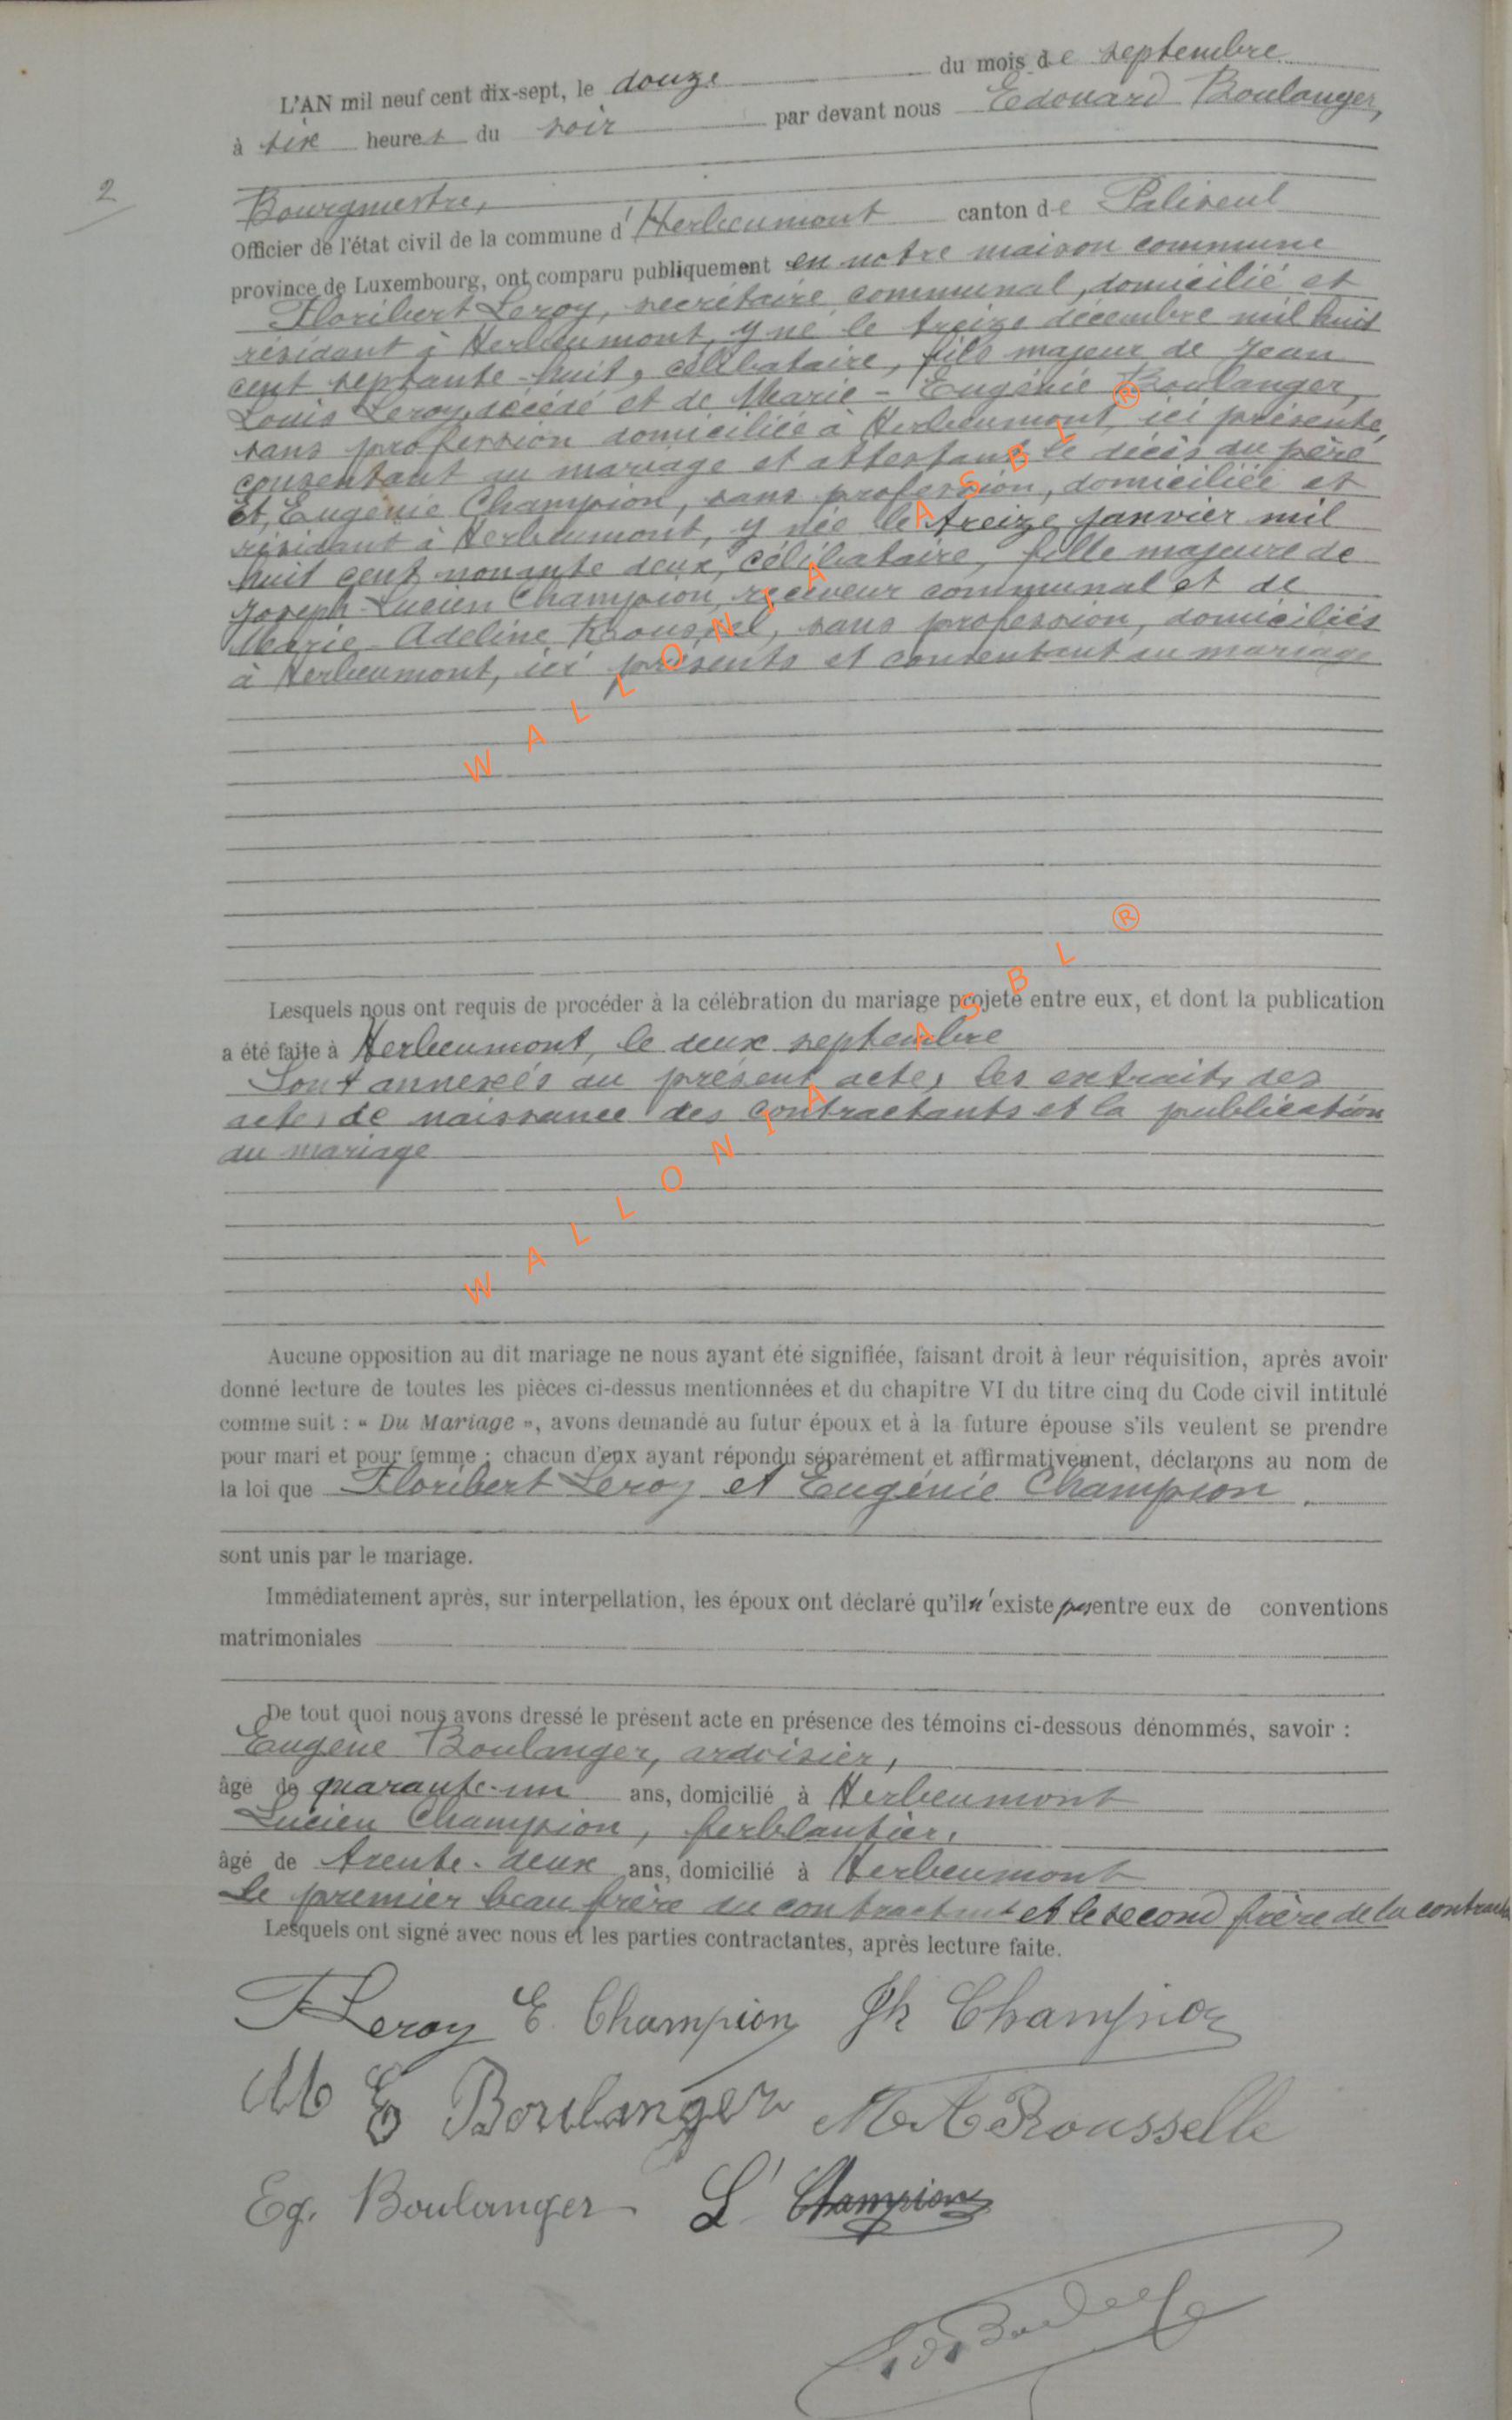 L'AN mil neuf cent dix-sept, le douze du mois de septembre
à six heures du soir par devant nous Edouard Boulanger,
2
Bourgmestre,
Officier de l'état civil de la commune d'Herbeumont canton de Paliseul
province de Luxembourg, ont comparu publiquement en notre maison commune
Floribert Leroy, secrétaire communal, domicilié et
résidant à Herbeumont, y né le treize décembre mil huit
cent septante-huit, célibataire, fils majeur de Jean
Louis Leroy, décédé et de Marie-Eugénie Boulanger,
sans profession domiciliée à Herbeumont, ici présente,
consentant au mariage et attestant le décès du père
Et, Eugénie Champion, sans profession, domiciliée et
résidant à Herbeumont, y née le treize janvier mil
huit cent nonante deux, célibataire, fille majeure de
Joseph-Lucien Champion, receveur communal et de
Marie-Adeline Roussel, sans profession, domiciliés
à Herbeumont, ici présents et consentant au mariage
WALLONIA ASBL ®
Lesquels nous ont requis de procéder à la célébration du mariage projeté entre eux, et dont la publication
a été faite à Herbeumont, le deux septembre
Sont annexés au présent acte, les extraits des
actes de naissance des contractants et la publication
du mariage
WALLONIA ASBL ®
Aucune opposition au dit mariage ne nous ayant été signifiée, faisant droit à leur réquisition, après avoir
donné lecture de toutes les pièces ci-dessus mentionnées et du chapitre VI du titre cinq du Code civil intitulé
comme suit : « Du Mariage », avons demandé au futur époux et à la future épouse s'ils veulent se prendre
pour mari et pour femme ; chacun d'eux ayant répondu séparément et affirmativement, déclarons au nom de
la loi que Floribert Leroy et Eugénie Champion.
sont unis par le mariage.
Immédiatement après, sur interpellation, les époux ont déclaré qu'il n'existe pas entre eux de conventions
matrimoniales
De tout quoi nous avons dressé le présent acte en présence des témoins ci-dessous dénommés, savoir :
Eugène Boulanger, ardoisier,
âgé de quarante-un ans, domicilié à Herbeumont
Lucien Champion, ferblantier,
âgé de trente-deux ans, domicilié à Herbeumont
Le premier beau frère du contractant et le second frère de la
Lesquels ont signé avec nous et les parties contractantes, après lecture faite.
F Leroy E. Champion Jh Champion
M E Boulanger M A Rousselle
Eg. Boulanger L Champion